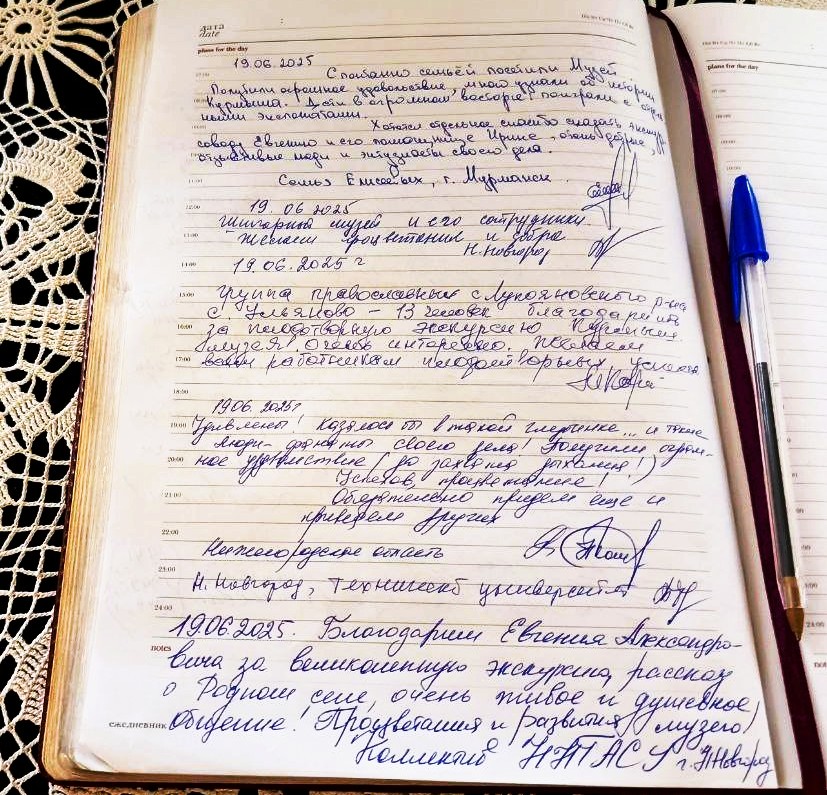 дата
date
plans for the day
19.06.2025
Спонтанно семьёй посетили Музей
Получили огромное удовольствие, много узнали об истории
Курмыша. Дети в огромном восторге поиграли с
ными экспонатами.
Хотелось отдельное спасибо сказать экскур
соводу Евгению и его помощнице Ирине, очень добрые,
отзывчивые люди и энтузиасты своего дела.
Семья Елисеевых, г. Мурманск.
11:00
12:00
19.06.2025
Шикарный музей и его сотрудники.
Желаем процветания и добра
Н.Новгород
14:00
19.06.2025 г
15:00
Группа православных с Лукояновского р-на
с. Ульяново – 13 человек благодарит
16:00
за плодотворную экскурсию Курмыш.
музея. Очень интересно. Желаем
17:00
вашим работникам плодотворных успехов
18:00
19.06.2025г
19:00
Удивлены! Казалось бы в такой глубинке... и такие
люди – фанаты своего дела! Получили огром-
20:00
ное удовольствие (до захвата дыхания!)
Успехов, процветания!
21:00
Обязательно приедем еще и
привезем других
22:00
Нижегородская область
23:00
Н.Новгород, Технический университет
24:00
19.06.2025. Благодарим Евгения Александро-
notes
вича за великолепную экскурсию, рассказ
о Родном селе, очень живое и душевное
ежедневник
общение! Процветания и развития музею!
Коллектив ННГАСУ г.Н.Новгород
plans for the day
24:00
notes